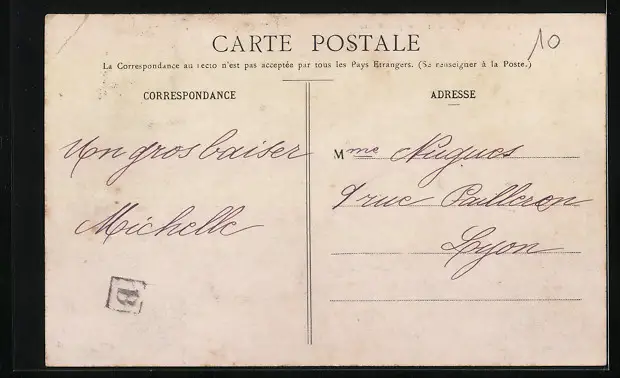 CARTE POSTALE
10
La Correspondance au recto n'est pas acceptée par tous les Pays Etrangers. (Se renseigner à la Poste.)
CORRESPONDANCE
Un gros baiser
Michelle
B
ADRESSE
Mme Nugues
9 rue Pailleron
Lyon